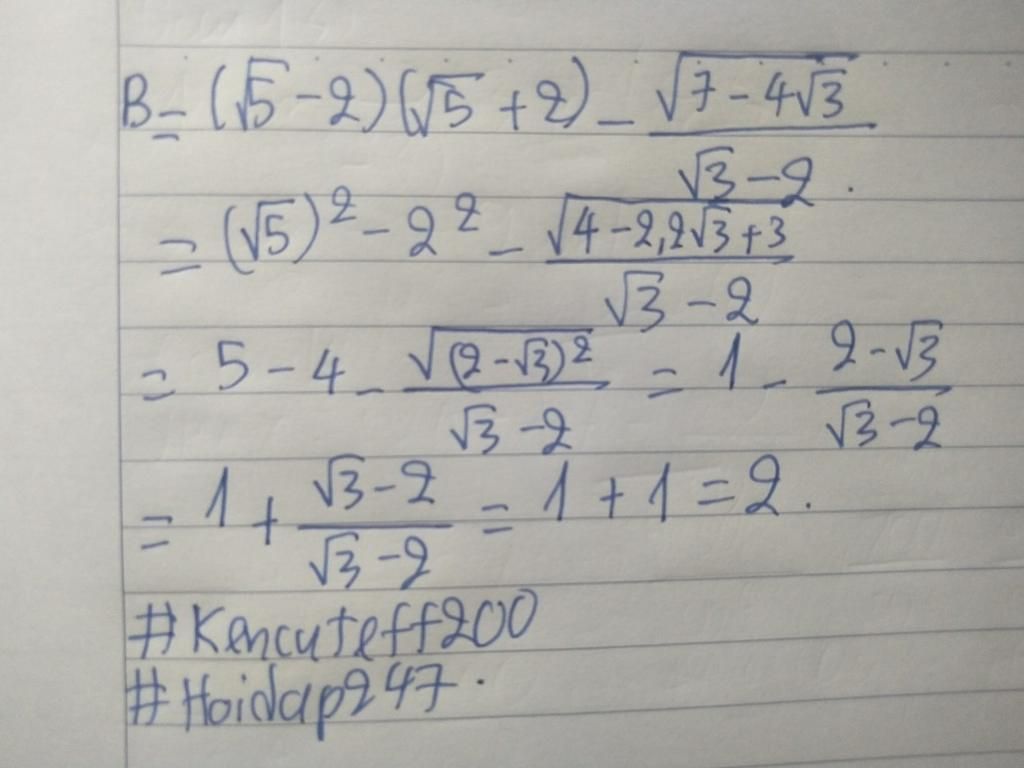 B = (√5 - 2)(√5 + 2) - √(7 - 4√3) / (√3 - 2) .
= (√5)² - 2² - √(4 - 2,2√3 + 3) / (√3 - 2)
= 5 - 4 - √((2 - √3)²) / (√3 - 2) = 1 - (2 - √3) / (√3 - 2)
= 1 + (√3 - 2) / (√3 - 2) = 1 + 1 = 2 .
#Kencuteff200
#Hoidap247 .